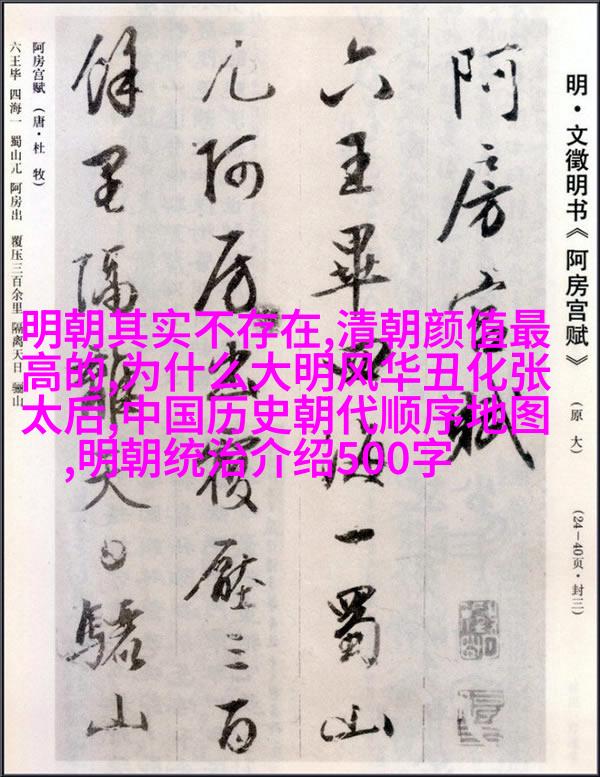 明·文徵明书《阿房宫赋》
（原大）
（24—40页·封三）
阿房宫賦
六王畢四海一蜀山
兀阿房出覆壓三百
餘里隔離天日驪山
阿房宫赋（唐·杜牧）
六王毕 四海一 蜀山兀 阿房出 覆压三百余里 隔离天日 骊山
明朝其实不存在,清朝颜值最
高的,为什么大明风华丑化张
太后,中国历史朝代顺序地图
,明朝统治介绍500字